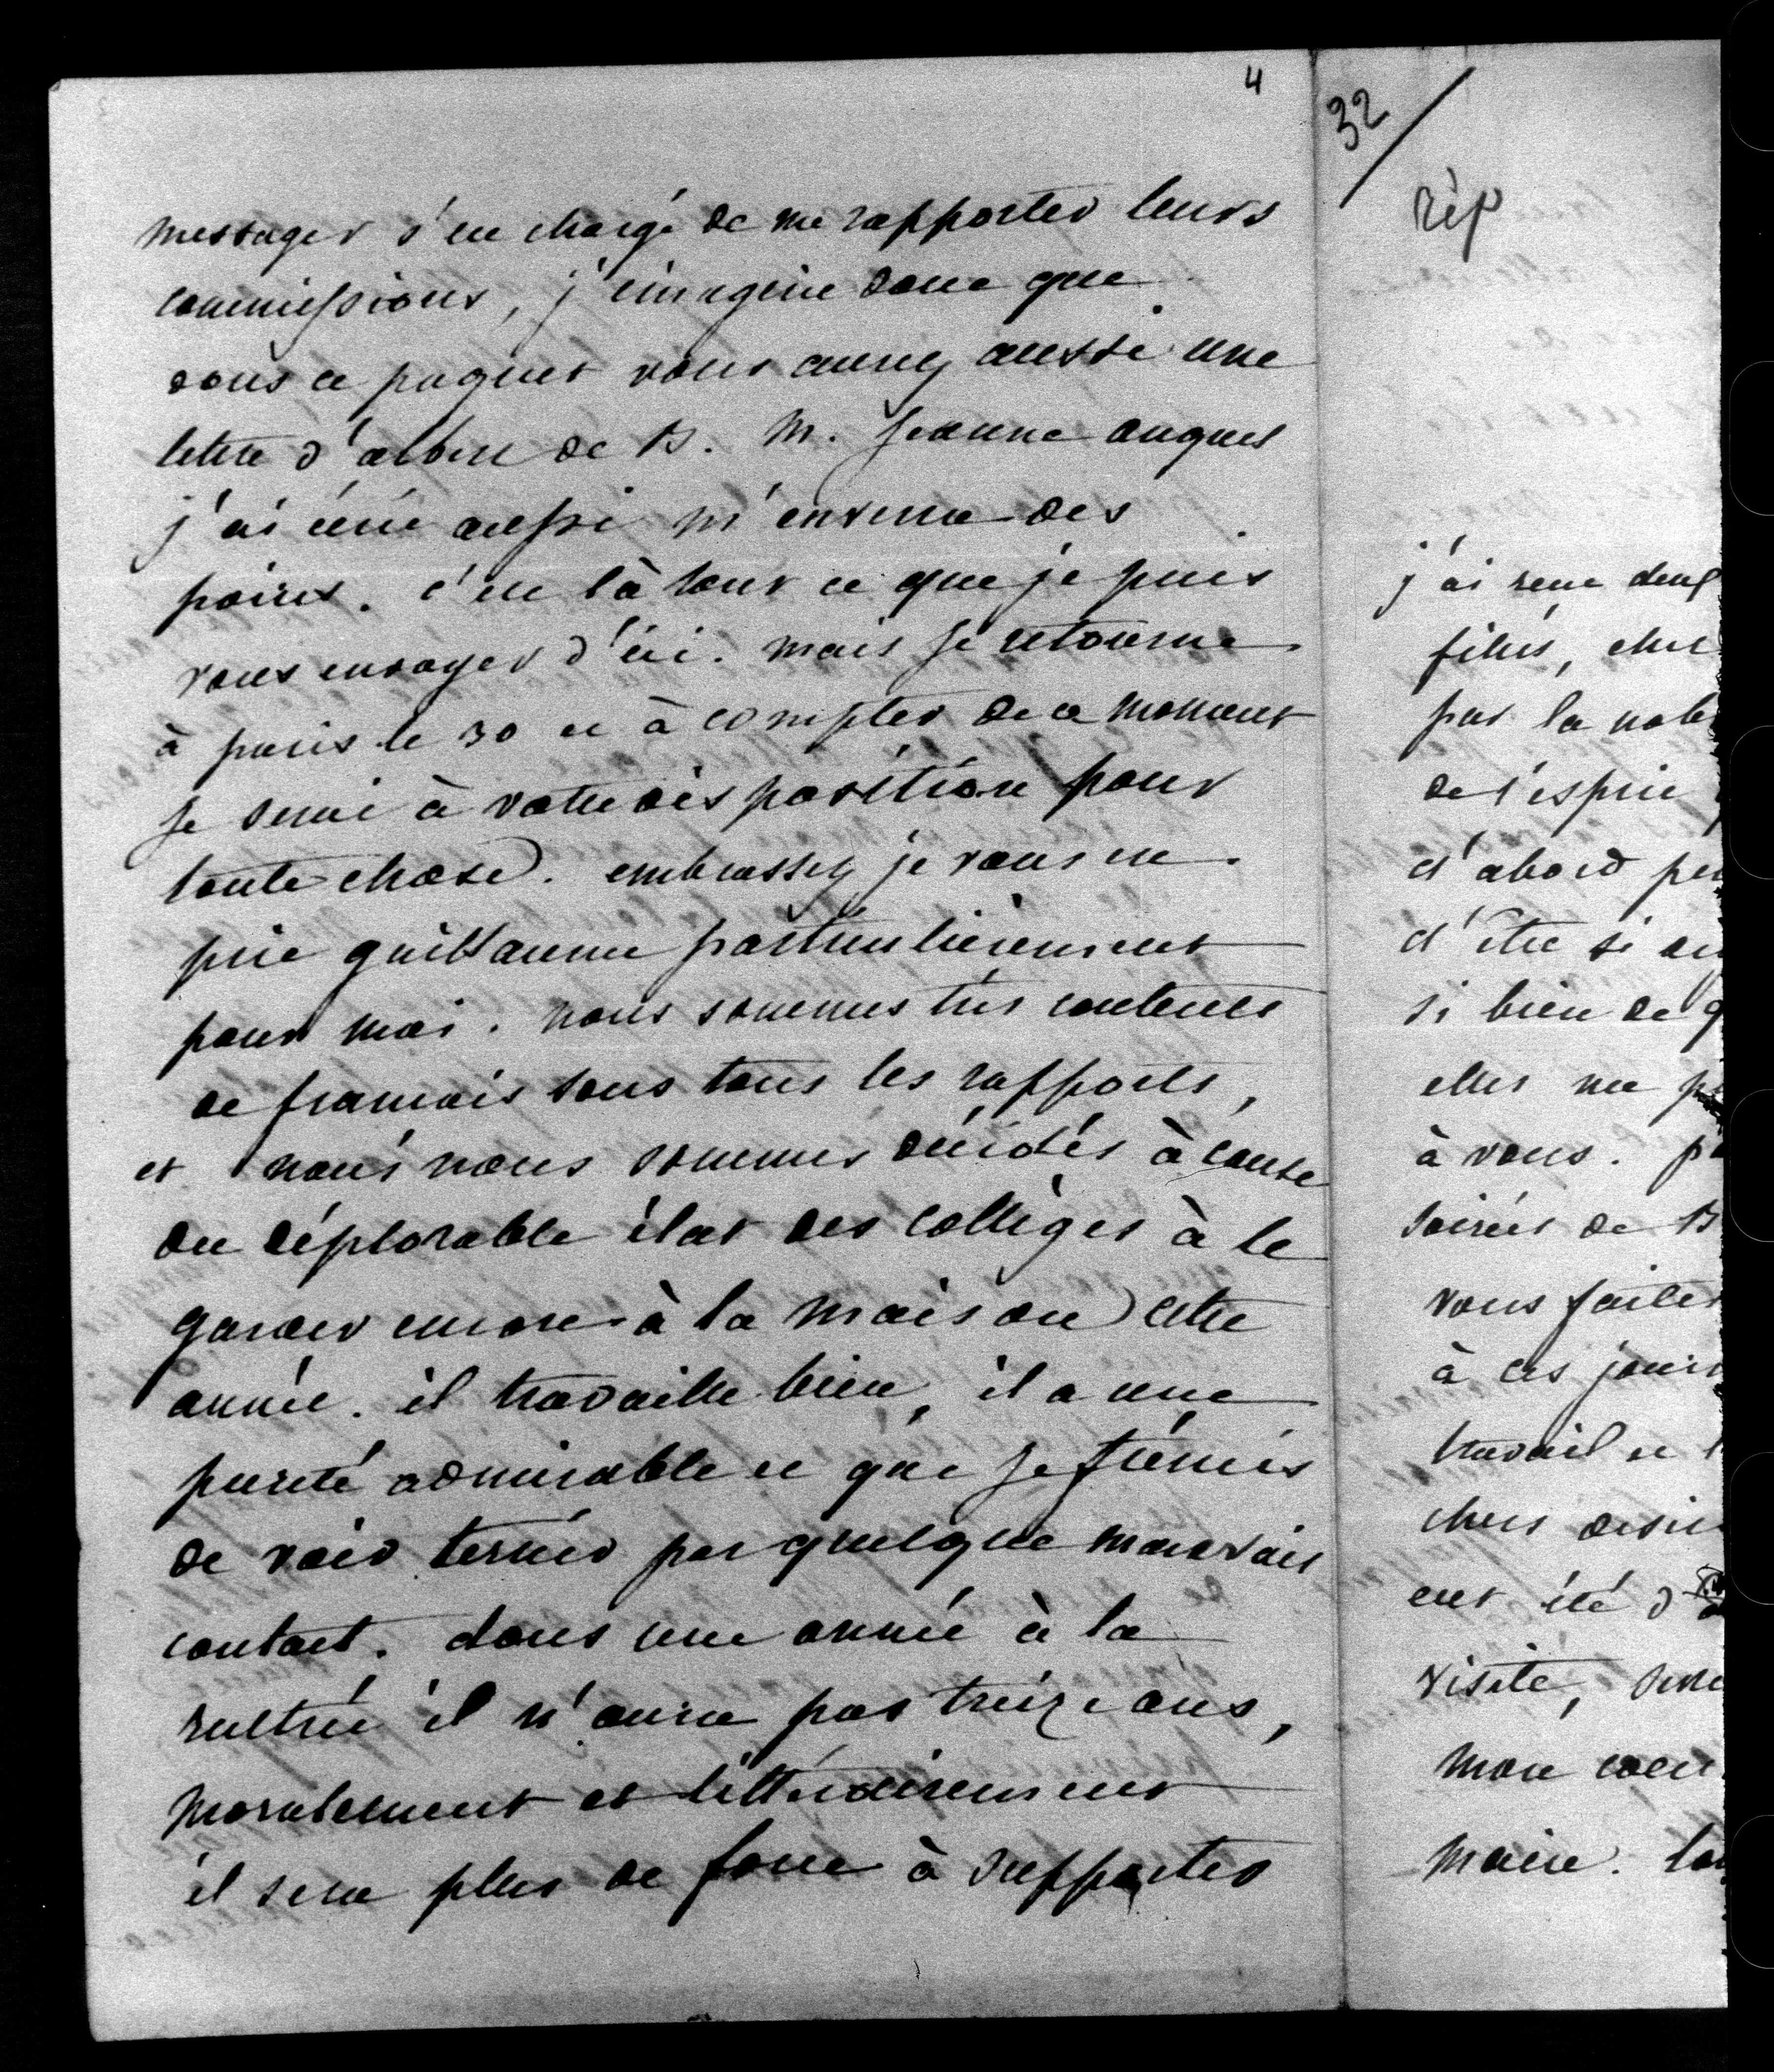 4
messager s'en chargé de me rapporter leurs
commissions, j'imagine donc que
sous ce paquet vous aurez aussi une
lettre d'albin de B. M. Jeanne auquel
j'ai écrit aussi m'enverra des
poires. c'est là tout ce que je puis
vous envoyer d'ici. mais je retourne
à paris le 30 et à compter de ce moment
je serai à votre disposition pour
toute chose. embrassez je vous en
prie guillaume particulièrement
pour moi. nous sommes très contents
de francois sous tous les rapports,
et nous nous sommes décidés à cause
du déplorable état des collèges à le
garder encore à la maison cette
année. il travaille bien, il a une
pureté admirable et que je frémis
de voir ternir par quelque mauvais
contact. dans une année à la
rentrée il n'aura pas treize ans,
moralement et littérairement
il sera plus de force à supporter
32
rép
j'ai reçu deux
filles, chez
par la noble
de l'esprit
d'abord pe
d'être si
si bien de q
elles me p
à vous. p
soirées de B
vous faites
à ces jouis
travail et
chers desir
eut été d
visite,
mon coeu
main.